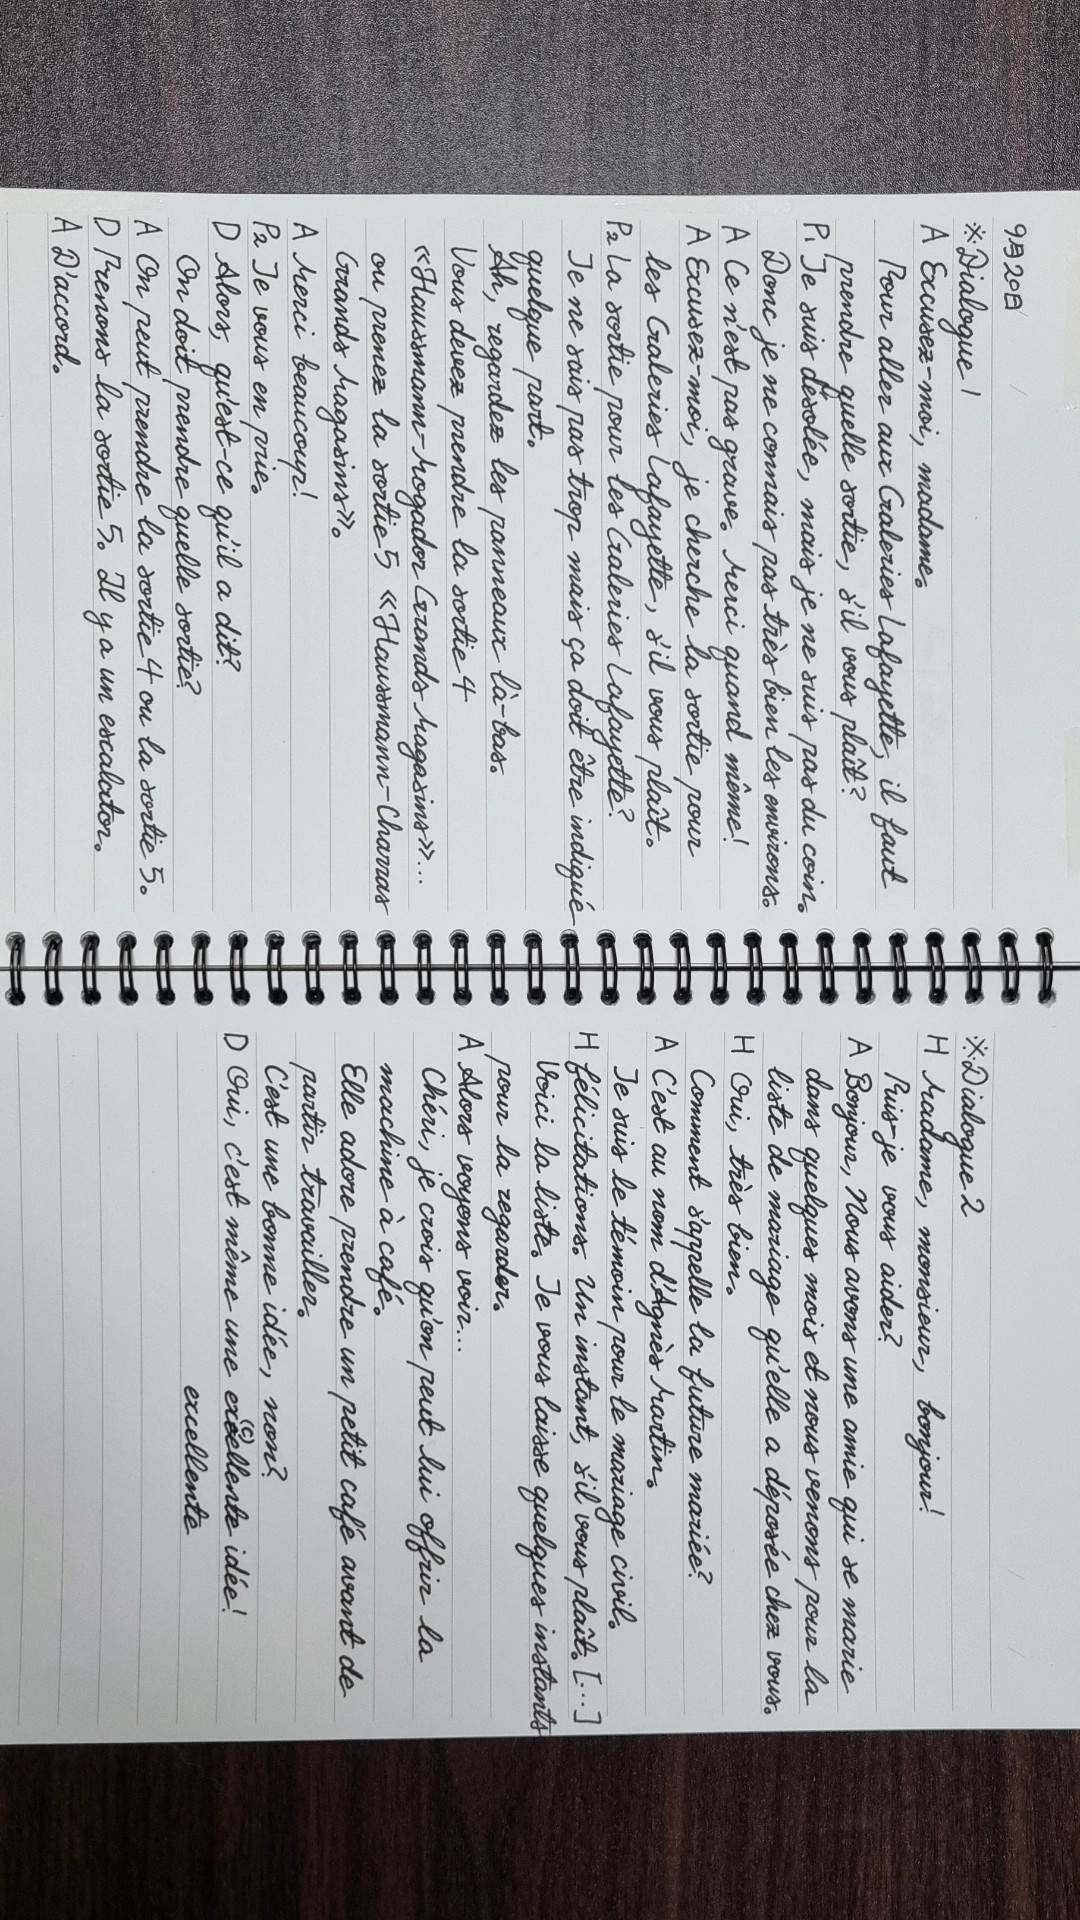 9月20日
※Dialogue 1
A Excusez-moi, madame.
Pour aller aux Galeries Lafayette, il faut
prendre quelle sortie, s'il vous plaît?
P1 Je suis désolée, mais je ne suis pas du coin.
Donc je ne connais pas très bien les environs.
A Ce n'est pas grave. Merci quand même!
A Excusez-moi, je cherche la sortie pour
les Galeries Lafayette, s'il vous plaît.
P2 La sortie pour les Galeries Lafayette?
Je ne sais pas trop mais ça doit être indiqué
quelque part.
Ah, regardez les panneaux là-bas.
Vous devez prendre la sortie 4
«Haussmann-Mogador Grands Magasins»...
ou prenez la sortie 5 «Haussmann-Charras
Grands Magasins».
A Merci beaucoup!
P2 Je vous en prie.
D Alors, qu'est-ce qu'il a dit?
On doit prendre quelle sortie?
A On peut prendre la sortie 4 ou la sortie 5.
D Prenons la sortie 5. Il y a un escalator.
A D'accord.
※Dialogue 2
H Madame, monsieur, bonjour!
Puis-je vous aider?
A Bonjour, Nous avons une amie qui se marie
dans quelques mois et nous venons pour la
liste de mariage qu'elle a déposée chez vous.
H Oui, très bien.
Comment s'appelle la future mariée?
A C'est au nom d'Agnès Martin.
Je suis le témoin pour le mariage civil.
H Félicitations. Un instant, s'il vous plaît. [...]
Voici la liste. Je vous laisse quelques instants
pour la regarder.
A Alors voyons voir...
Chéri, je crois qu'on peut lui offrir la
machine à café.
Elle adore prendre un petit café avant de
partir travailler.
C'est une bonne idée, non?
D Oui, c'est même une ex(c)ellente idée!
excellente